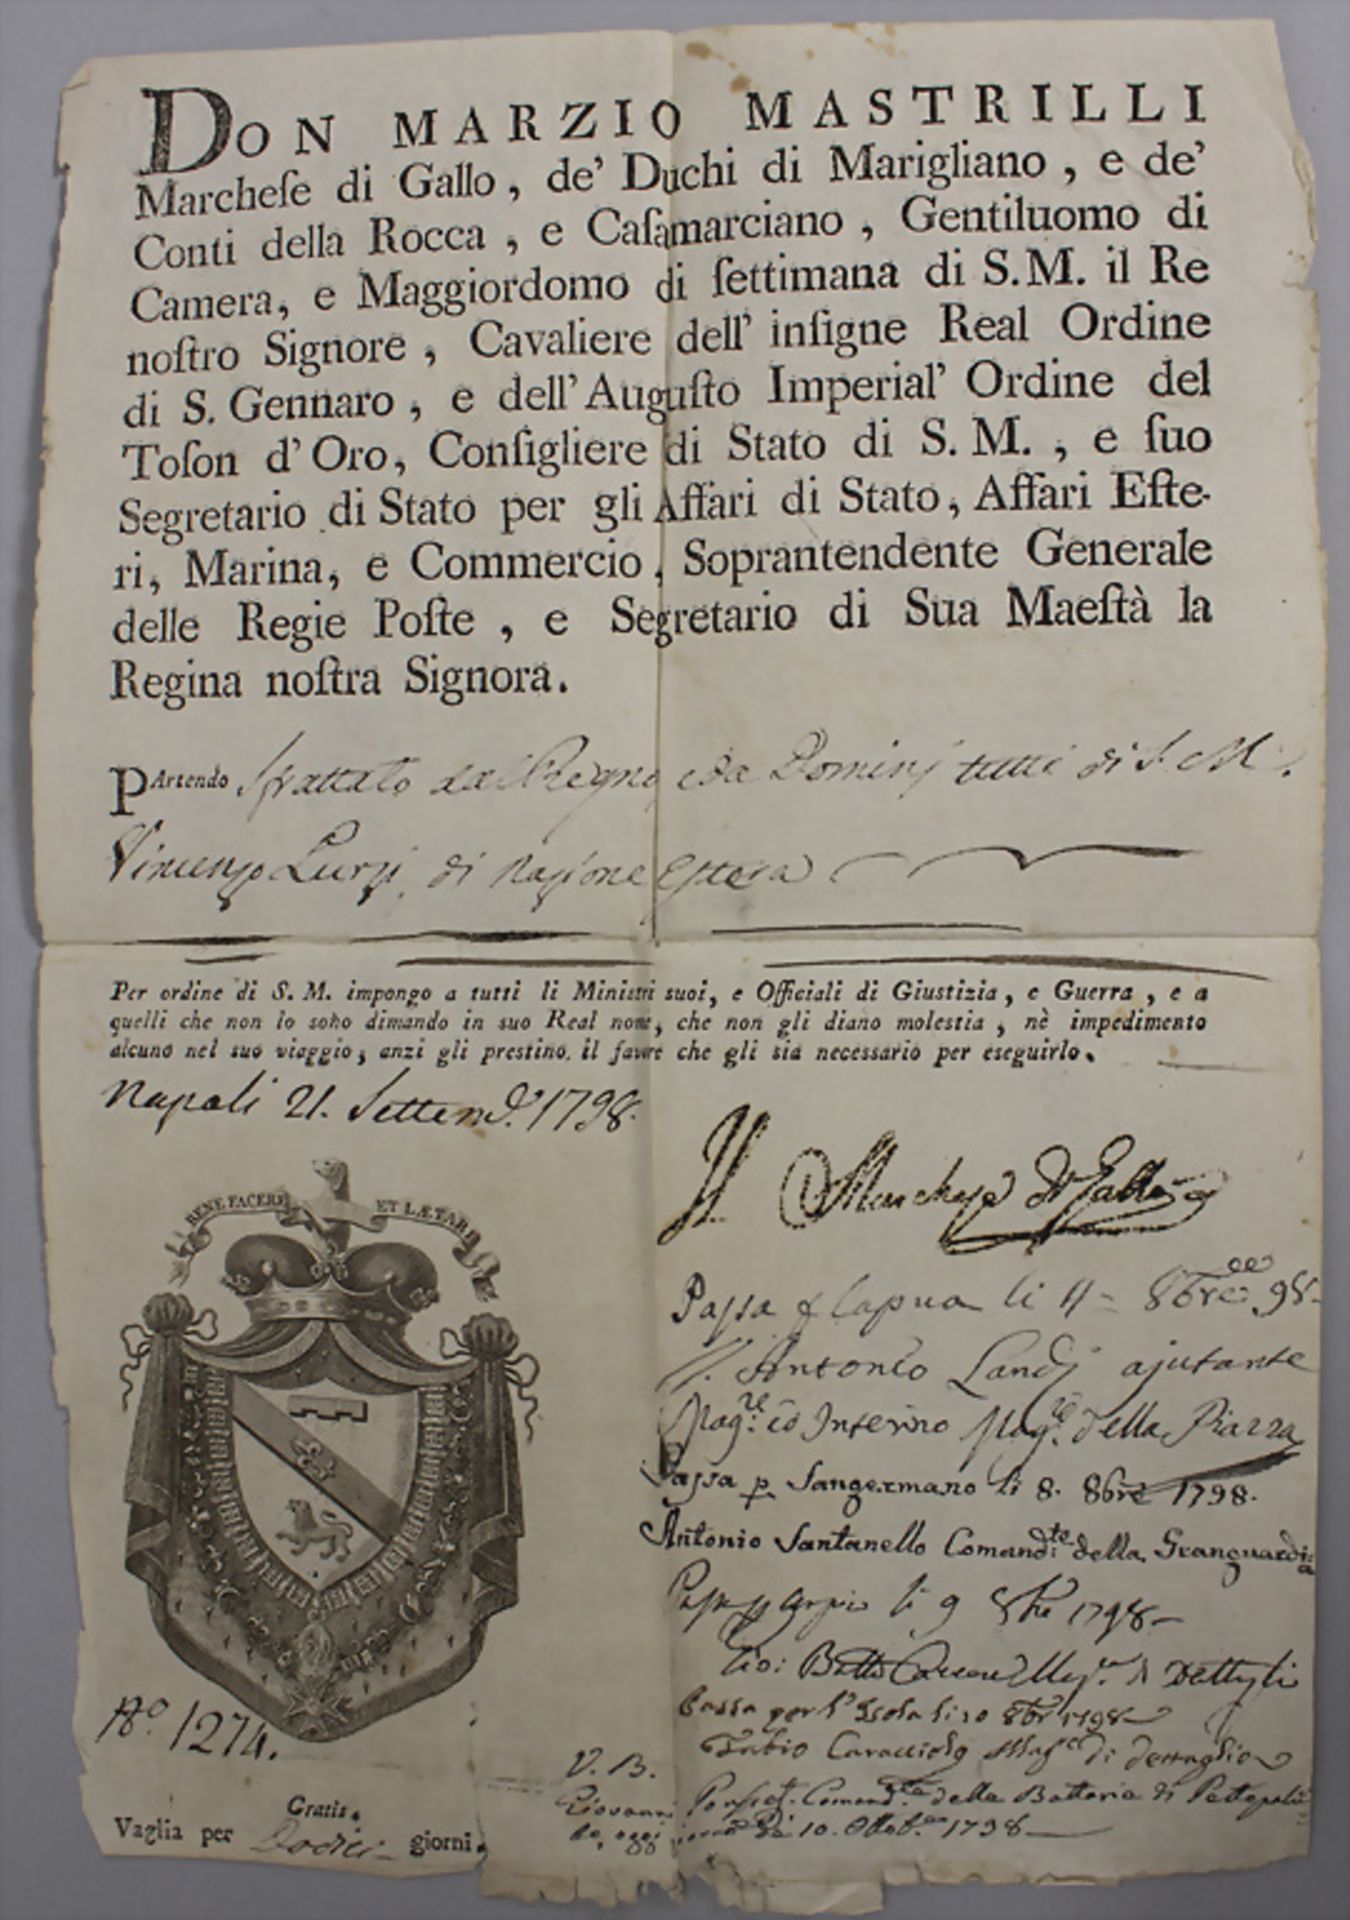 DON MARZIO MASTRILLI
Marcheſe di Gallo, de' Duchi di Marigliano, e de'
Conti della Rocca, e Caſamarciano, Gentiluomo di
Camera, e Maggiordomo di ſettimana di S.M. il Re
noſtro Signore, Cavaliere dell' inſigne Real Ordine
di S. Gennaro, e dell' Auguſto Imperial' Ordine del
Toſon d'Oro, Conſigliere di Stato di S. M., e ſuo
Segretario di Stato per gli Affari di Stato, Affari Eſte-
ri, Marina, e Commercio, Soprantendente Generale
delle Regie Poſte, e Segretario di Sua Maeſtà la
Regina noſtra Signora.
PArtendo Sfrattato dal Regno e da Dominj tutti di S. M.
Vincenzo Curzi, di Nazione Estera
Per ordine di S. M. impongo a tutti li Ministri suoi, e Officiali di Giustizia, e Guerra, e a
quelli che non lo sono dimando in suo Real nome, che non gli diano molestia, nè impedimento
alcuno nel suo viaggio, anzi gli prestino il favore che gli sia necessario per eseguirlo.
Napoli 21. Settemb.e 1798.
Il Marchese di Gallo
BENE FACERE ET LÆTARI
Passa p Capua li 8bre 98
Antonio Landj ajutante
Mag.re ed Interino Mag.re della Piazza
Passa p Sangermano li 8. 8bre 1798.
Antonio Santanello Comand.te della Granguardia
li 9 8bre 1798
Gio: Batta di Dettagli
Passa per l'Isola li 10 8bre 1798
Fabio Caracciolo Mag.re di dettaglio
N.o 1274.
V. B.
Giovanni Comand.te della Batteria di
oggi 10. Ottob.re 1798
Gratis.
Vaglia per Dodici giorni.